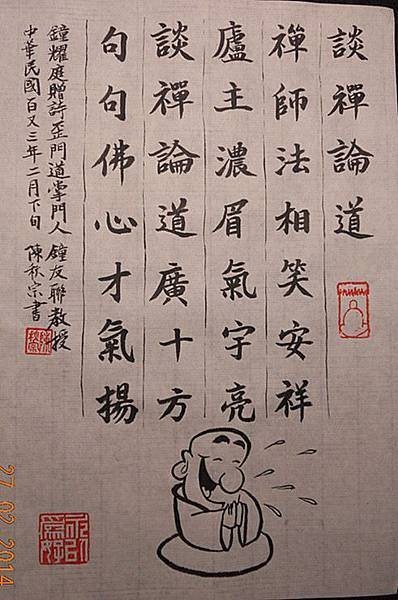 談禪論道
禪師法相笑安祥
廬主濃眉氣宇亮
談禪論道廣十方
句句佛心才氣揚
鐘耀庭贈詩歪門道掌門人鐘友聯教授
中華民國百又三年二月下旬 陳秋宗書
27 02 2014